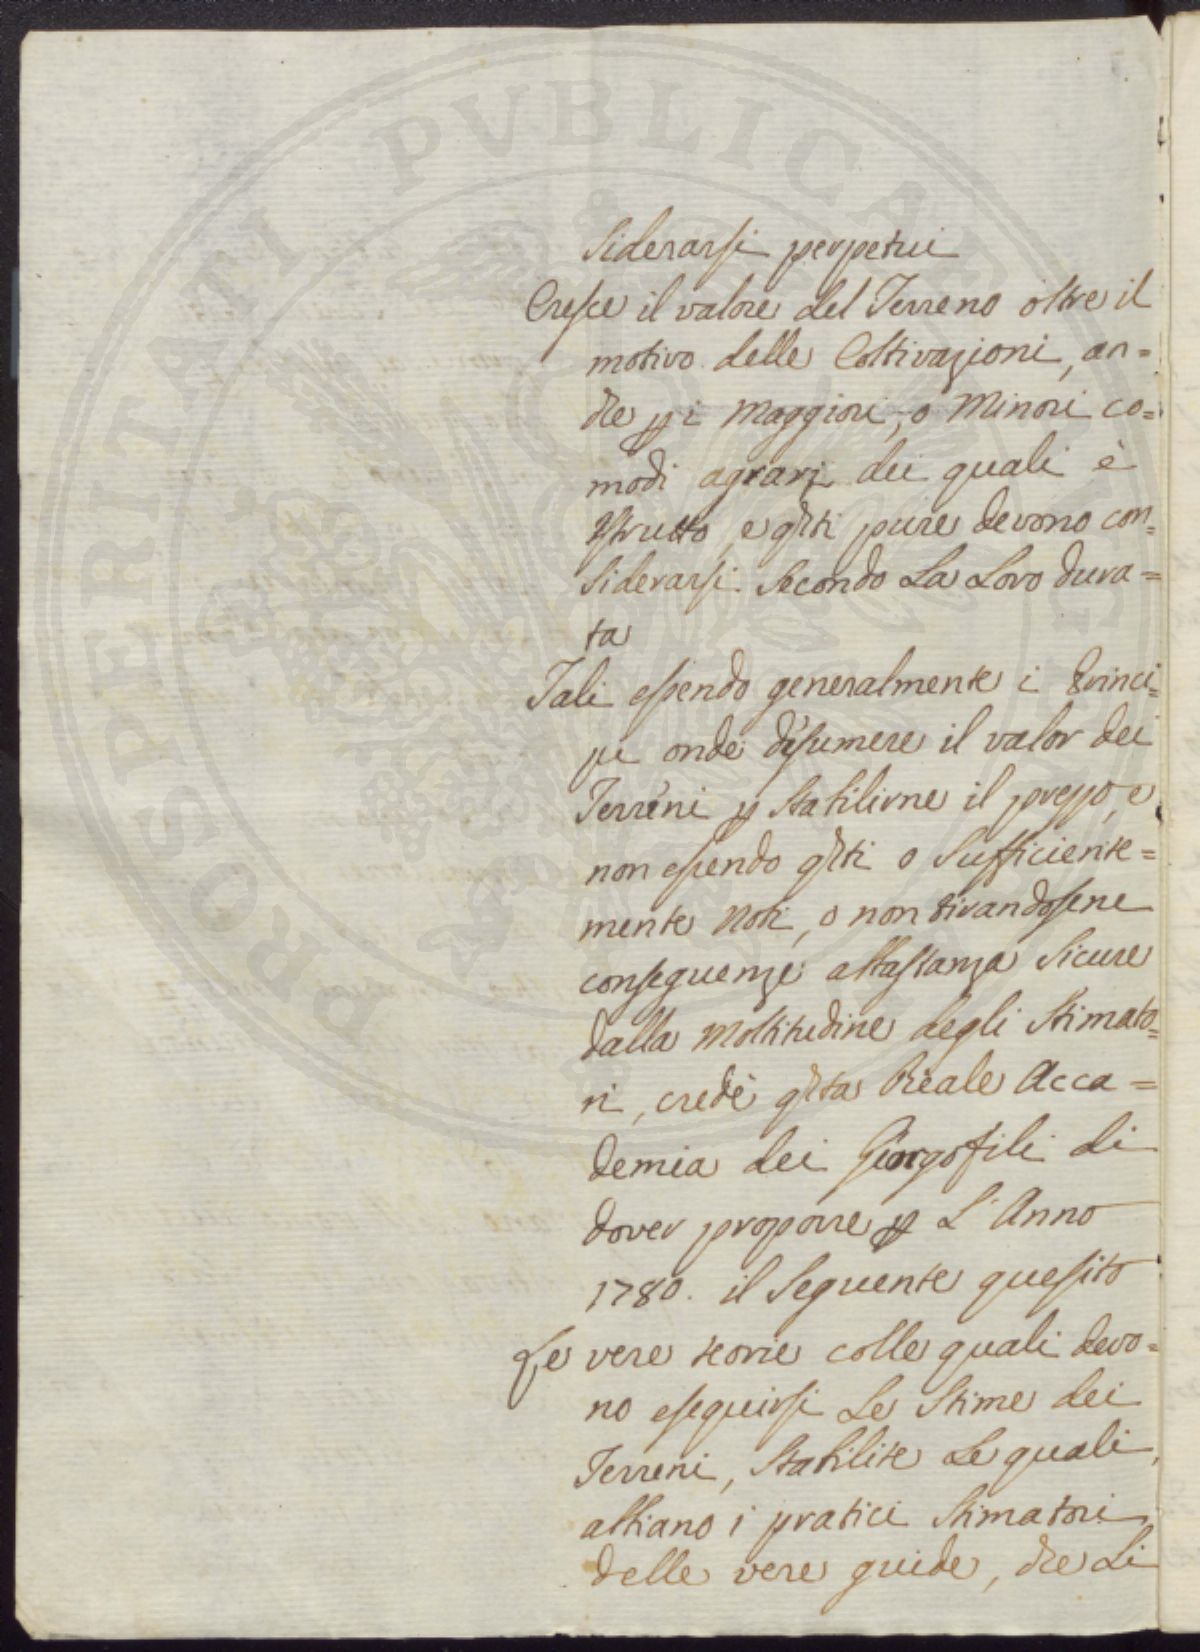 siderarsi perpetui
Cresce il valore del Terreno oltre il
motivo delle Coltivazioni, an=
che p i Maggiori, o Minori co=
modi agrarj dei quali è
Istrutto, e qsti pure devono con=
siderarsi secondo La Loro dura=
ta
Tali essendo generalmente i Princi=
pi onde desumere il valor dei
Terreni p stabilirne il prezzo, e
non essendo qsti o sufficiente=
mente Noti, o non tirandosene
conseguenze abbastanza sicure
dalla Moltitudine degli Stimato=
ri, credè qsta Reale Acca=
demia dei Giorgofili di
dover proporre p L'Anno
1780. il seguente quesito
Le vere teorie colle quali devo=
no eseguirsi Le Stime dei
Terreni, stabilite Le quali,
abbiano i pratici Stimatori
delle vere guide, che Li
PROSPERITATI PVBLICAE AVGENDAE